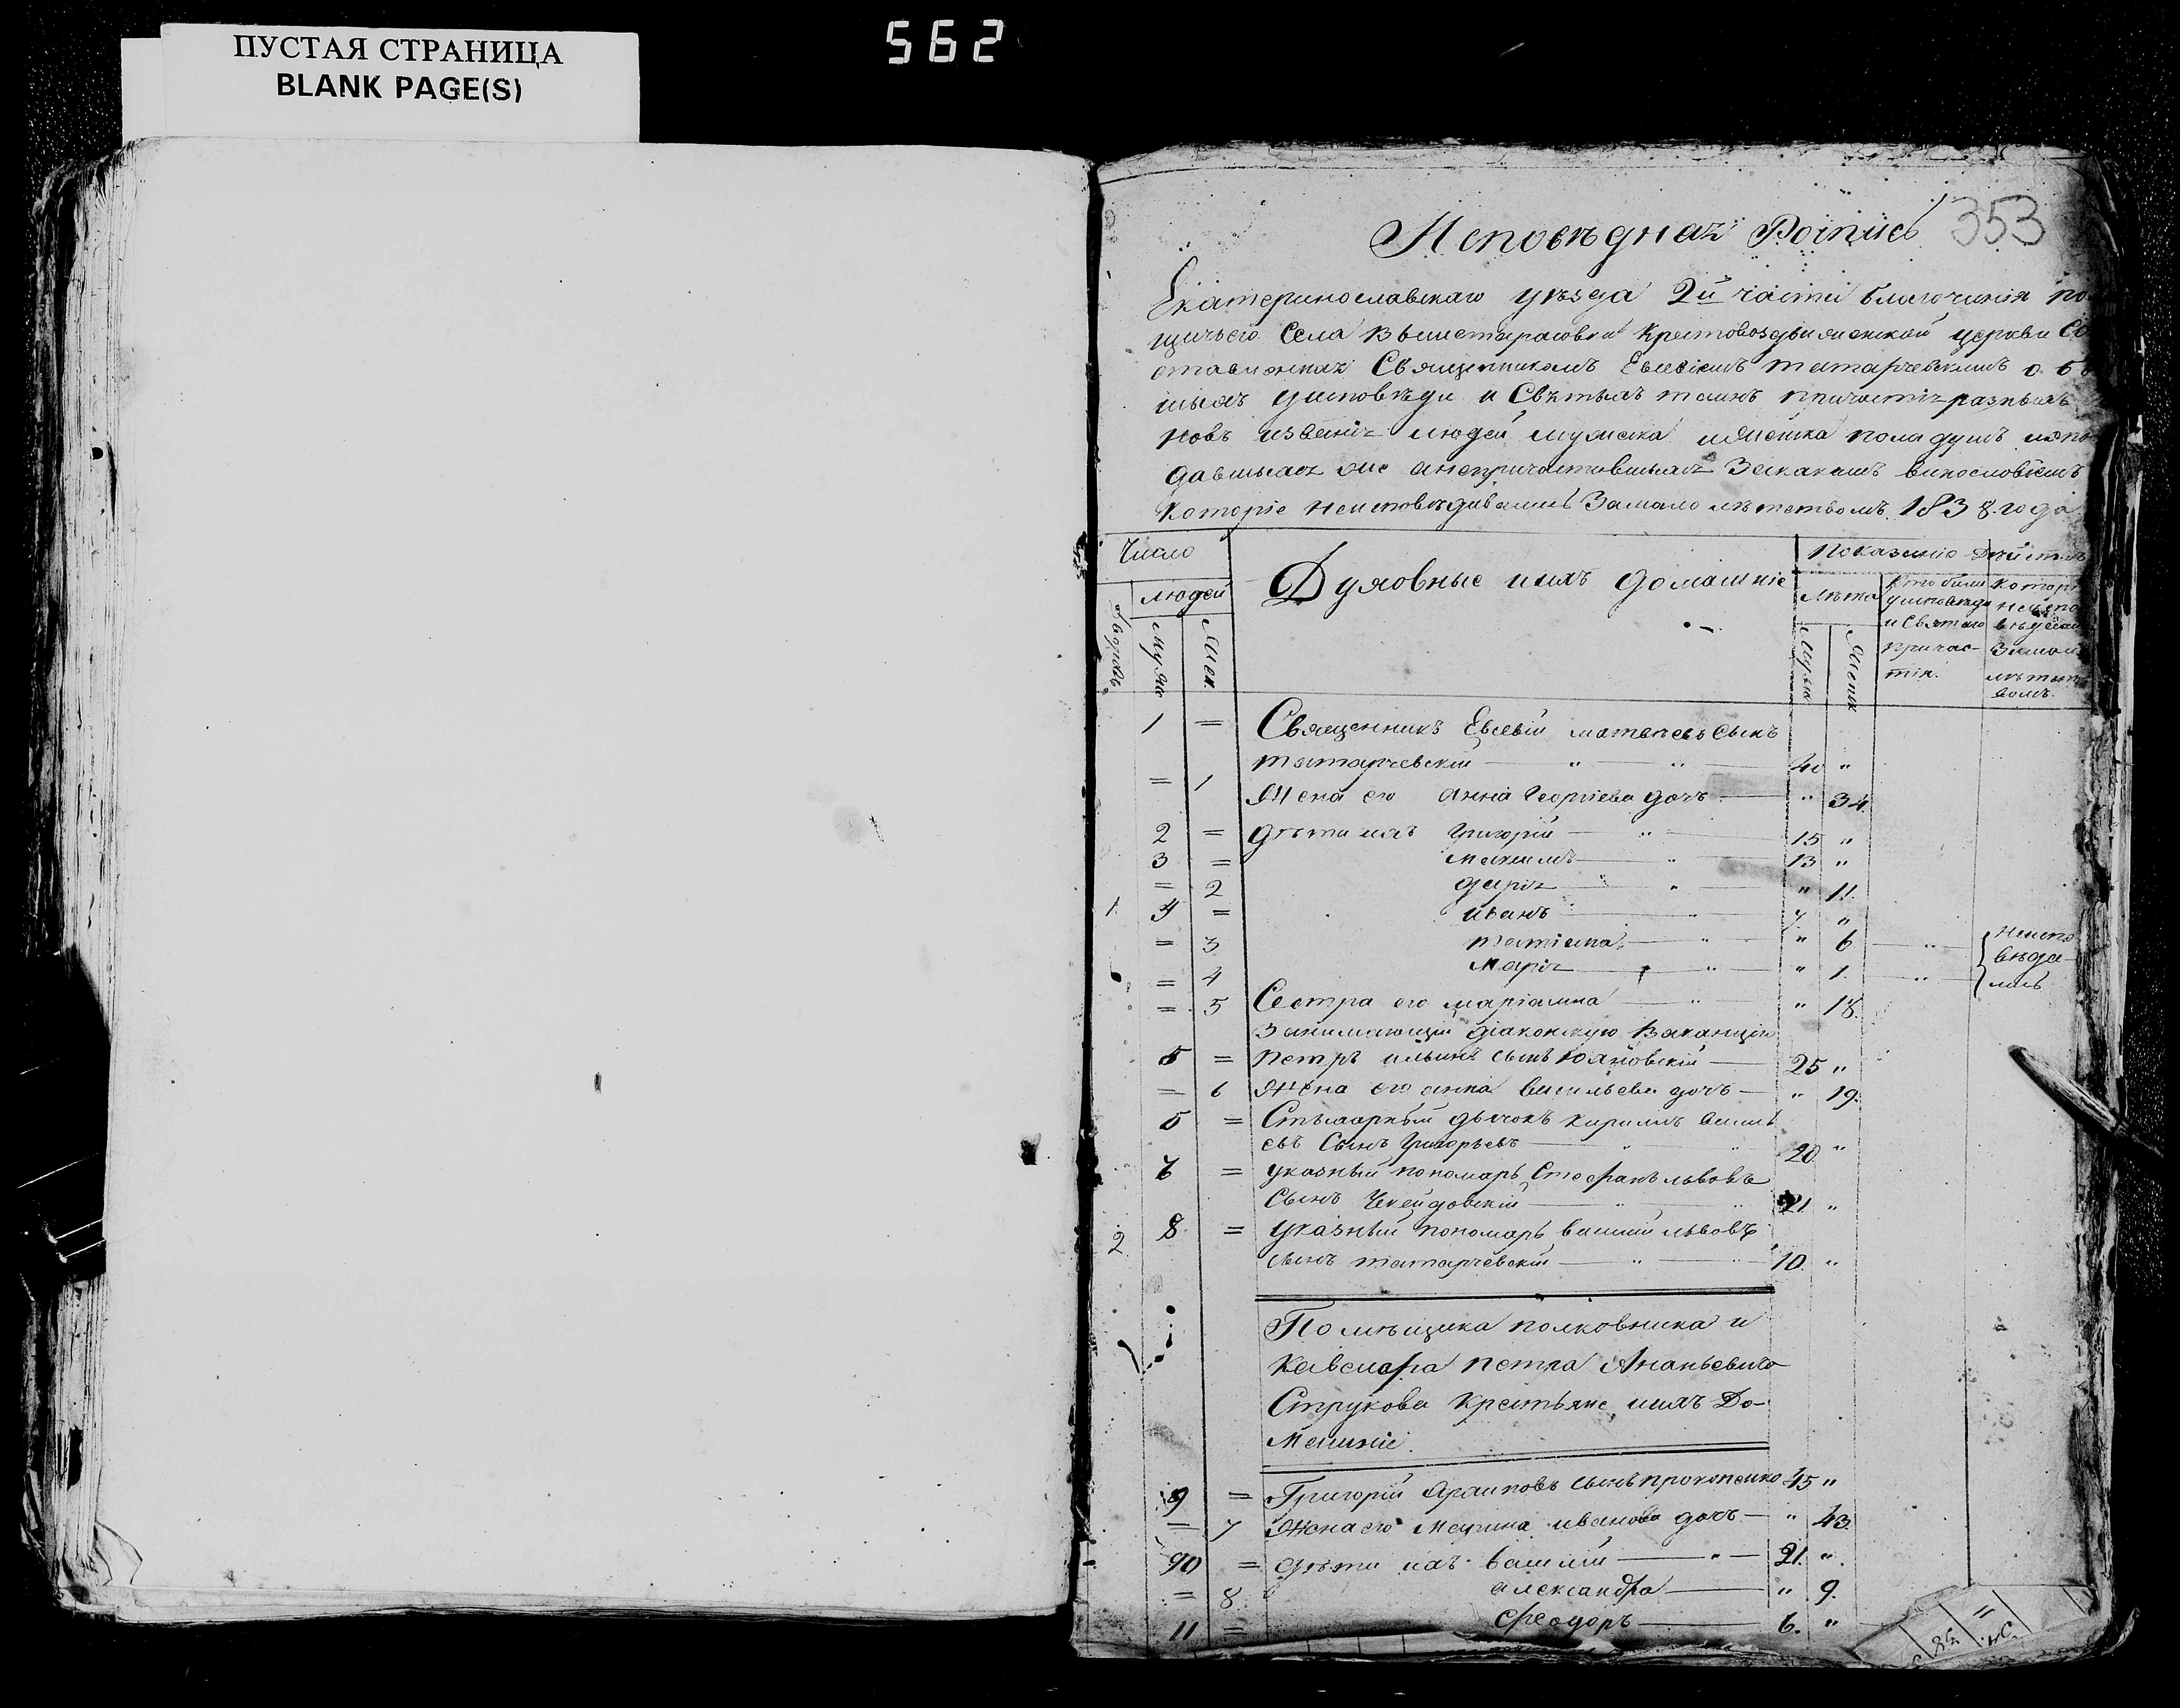 ПУСТАЯ СТРАНИЦА
BLANK PAGE(S)
562
353
Исповѣдная Роспись
Екатеринославскаго уѣзда 2й части благочинія по
щичьего Села Вышетарасовки Крестовоздвиженской церкви Со
ставленная Священникомъ Евсевіемъ татарчевскимъ о б
шыхъ уисповѣди и Свѣтыхъ таинъ причастія разныхъ
новъ изванія людей мужеска иженска пола душъ испо
давшыхъ же инепричастившыхъ Заякакимъ винословіемъ
Которіе неисповѣдивались Замало лѣтствомъ. 1838. года
Число
людей
дворовъ
Муж
Жен.
Духовные иихъ домашніе
Показаніе Дѣйств
лѣта
Мужск
Женск
Кто были уисповѣди и Святаго причас-тія.
Которі неиспо вѣдали Замало лѣтст вомъ.
1 = Священникъ Евсевій матвѣевъ Сынъ
татарчевскій — " — " — 40 "
= 1 Жена его анна Георгіева дочь — " 34.
2 = дѣти ихъ Григорій — " — 15 "
3 = максимъ — " — 13 "
= 2 дарія — " — " 11.
1. 4 = иванъ — " — 7. "
= 3 татіана — " — " 6 — " — неиспо
= 4 Марія — " — " 1. — " — вѣда-лись
= 5 Сестра его маріамна — " — " 18.
Занимающій діаконскую Ваканцію
5 = петръ ильинъ сынъ Юхновскій — 25 "
= 6 Жена его анна васильева дочь — " 19.
6 = Стихарный дьячокъ кирилъ васил
евъ Сынъ Григорьевъ — " — " 20 "
7 = указный пономарь Стефанъ львовъ
Сынъ Чекейдовскій — " — " 21. "
2 8 = Указный пономарь василій львовъ
сынъ татарчевскій — " — " — 10. "
Помѣщика полковника и
Кавелера петра Ананьевича
Струкова Крестьяне иихъ До-
Машніе.
9 = Григорій Архиповъ сынъ прокопенко 45 "
= 7 Жена его Марина иванова дочь — " 43.
10 = дѣти ихъ василій — " — 21. "
= 8. александра — " 9.
11 = феодоръ — 6. "